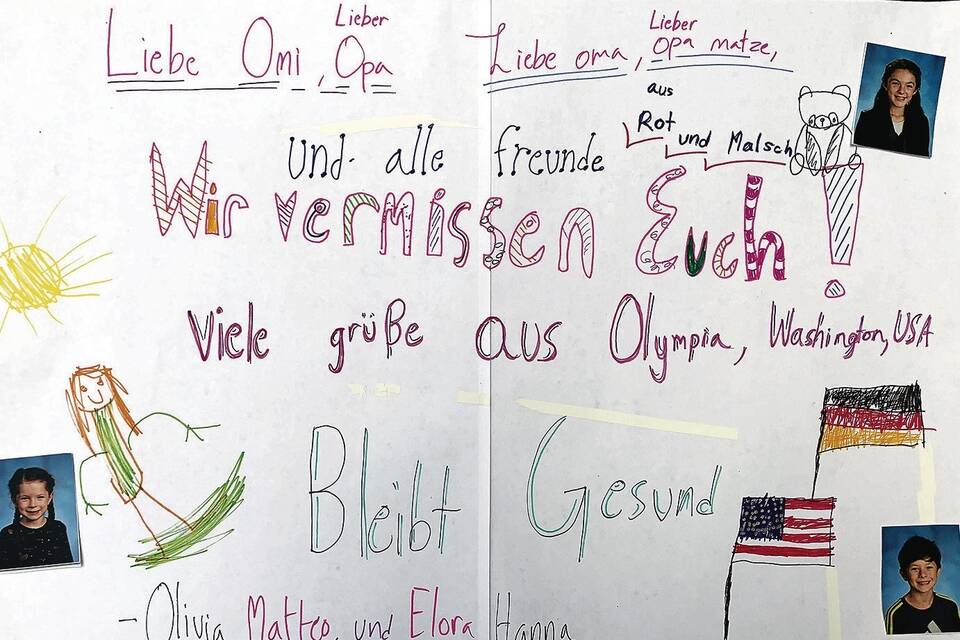 Liebe Omi, Lieber Opa
Liebe oma, Lieber opa matze,
und alle freunde aus Rot und Malsch
Wir vermissen Euch!
viele grüße aus Olympia, Washington, USA
Bleibt Gesund
- Olivia Matteo, und Elora Hanna